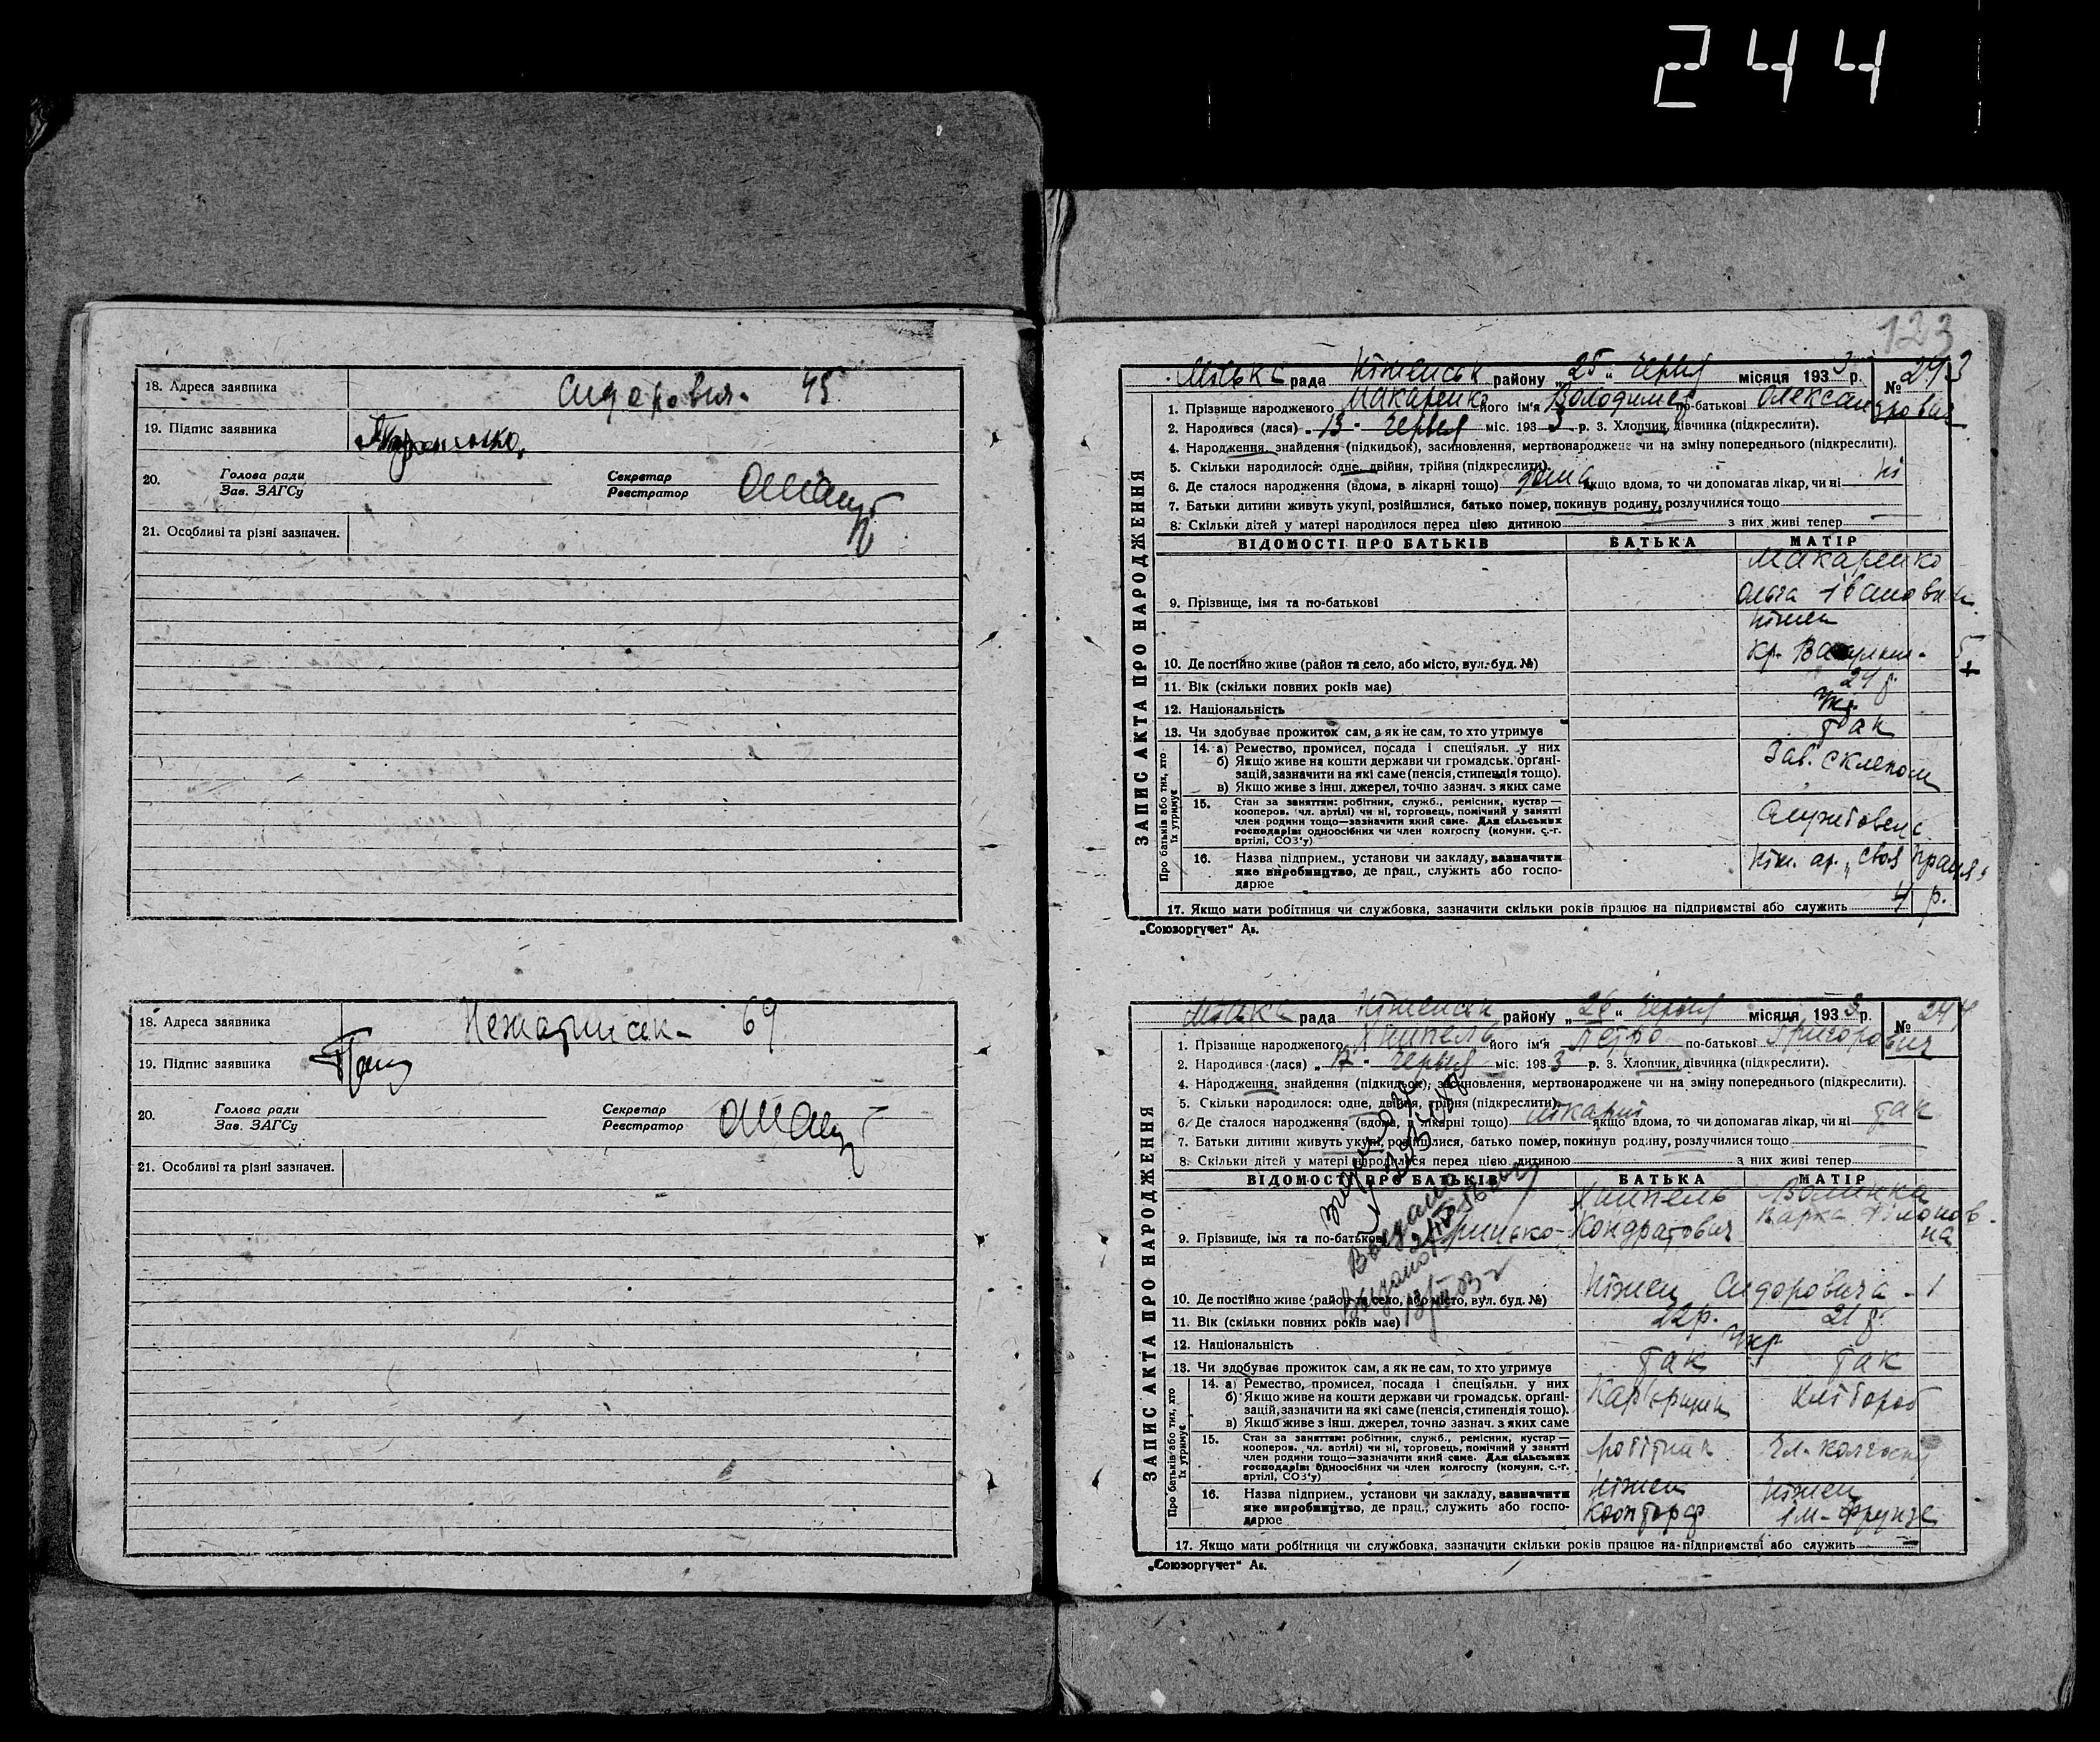 244
18. Адреса заявника Сидорович. 45
19. Підпис заявника
20. Голова ради Зав. ЗАГСу Секретар Реєстратор
21. Особливі та різні зазначен.
18. Адреса заявника 69
19. Підпис заявника
20. Голова ради Зав. ЗАГСу Секретар Реєстратор
21. Особливі та різні зазначен.
123
ЗАПИС АКТА ПРО НАРОДЖЕННЯ
Міська рада Ніженськ району „25“ червня місяця 1933 р. № 243
1. Прізвище народженого Макаренко його ім'я Володимер по-батькові Олександрович
2. Народився (лася) „13“ червня міс. 1933 р. 3. Хлопчик, дівчинка (підкреслити).
4. Народження, знайдення (підкидьок), засиновлення, мертвонароджене чи на зміну попереднього (підкреслити).
5. Скільки народилося: одне, двійня, трійня (підкреслити).
6. Де сталося народження (вдома, в лікарні тощо) дома якщо вдома, то чи допомагав лікар, чи ні ні
7. Батьки дитини живуть укупі, розійшлися, батько помер, покинув родину, розлучилися тощо
8. Скільки дітей у матері народилося перед цією дитиною — з них живі тепер —
ВІДОМОСТІ ПРО БАТЬКІВ БАТЬКА МАТІР
Макаренко
9. Прізвище, імя та по-батькові Ольга Івановна
Ніжен
10. Де постійно живе (район та село, або місто, вул. буд. №)
11. Вік (скільки повних років має) 24 р.
12. Національність Укр
13. Чи здобуває прожиток сам, а як не сам, то хто утримує так
Про батьків або тих, хто їх утримує
14. а) Ремество, промисел, посада і спеціяльн. у них Зав. склепом
б) Якщо живе на кошти держави чи громадськ. органі-
зацій, зазначити на які саме (пенсія, стипендія тощо).
в) Якщо живе з інш. джерел, точно зазнач. з яких саме
15. Стан за заняттям: робітник, служб., ремісник, кустар —
кооперов. (чл. артілі) чи ні, торговець, помічний у занятті
член родини тощо—зазначити який саме. Для сільських
господарів: одноосібних чи член колгоспу (комуни, с.-г.
артілі, СОЗ'у) Службовець
16. Назва підприєм., установи чи закладу, зазначити Ніж. ар. „Своя праця“
яке виробництво, де прац., служить або госпо-
дарює
17. Якщо мати робітниця чи службовка, зазначити скільки років працює на підприємстві або служить 4 р.
„Союзоргучет“ Ав.
ЗАПИС АКТА ПРО НАРОДЖЕННЯ
Міська рада Ніженськ району „26“ червня місяця 1933 р. № 244
1. Прізвище народженого його ім'я Петро по-батькові Григорович
2. Народився (лася) „12“ червня міс. 1933 р. 3. Хлопчик, дівчинка (підкреслити).
4. Народження, знайдення (підкидьок), засиновлення, мертвонароджене чи на зміну попереднього (підкреслити).
5. Скільки народилося: одне, двійня, трійня (підкреслити).
6. Де сталося народження (вдома, в лікарні тощо) лікарні якщо вдома, то чи допомагав лікар, чи ні так
7. Батьки дитини живуть укупі, розійшлися, батько помер, покинув родину, розлучилися тощо
8. Скільки дітей у матері народилося перед цією дитиною з них живі тепер
ВІДОМОСТІ ПРО БАТЬКІВ БАТЬКА МАТІР
9. Прізвище, імя та по-батькові Гринько Кондратович Варка Філоновна
10. Де постійно живе (район та село, або місто, вул. буд. №) Ніжен Сидоровича - 1
11. Вік (скільки повних років має) 22 р. 21 р.
12. Національність Укр
13. Чи здобуває прожиток сам, а як не сам, то хто утримує так так
Про батьків або тих, хто їх утримує
14. а) Ремество, промисел, посада і спеціяльн. у них хлібороб
б) Якщо живе на кошти держави чи громадськ. органі-
зацій, зазначити на які саме (пенсія, стипендія тощо).
в) Якщо живе з інш. джерел, точно зазнач. з яких саме
15. Стан за заняттям: робітник, служб., ремісник, кустар — робітник чл. колгоспу
кооперов. чл. артілі) чи ні, торговець, помічний у занятті
член родини тощо—зазначити який саме. Для сільських
господарів: одноосібних чи член колгоспу (комуни, с.-г.
артілі, СОЗ'у)
16. Назва підприєм., установи чи закладу, зазначити Ніжен Ніжен
яке виробництво, де прац., служить або госпо- ім. Фрунзе
дарює
17. Якщо мати робітниця чи службовка, зазначити скільки років працює на підприємстві або служить —
„Союзоргучет“ Ав.